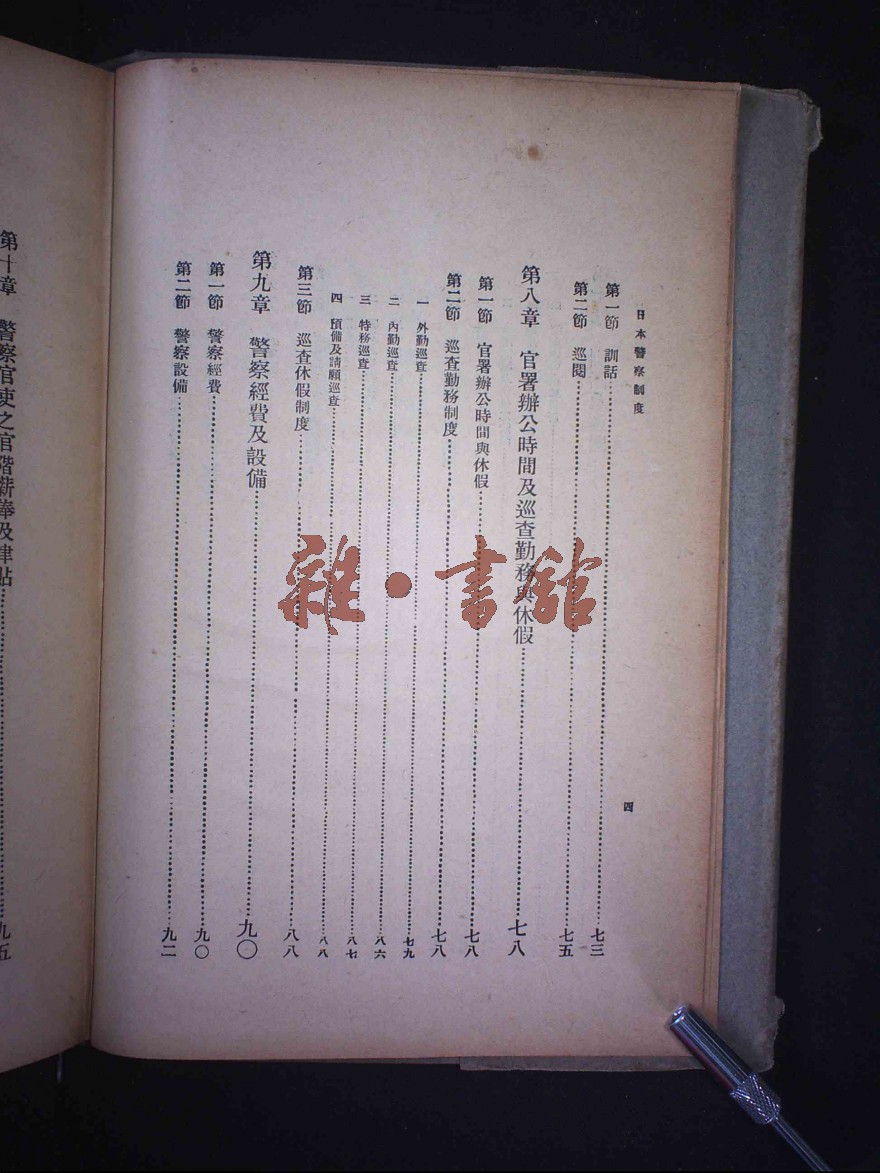 日本警察制度
四
第一節 訓話……七三
第二節 巡閱……七五
第八章 官署辦公時間及巡查勤務與休假……七八
第一節 官署辦公時間與休假……七八
第二節 巡查勤務制度……七八
一 外勤巡查……七九
二 內勤巡查……八六
三 特務巡查……八七
四 預備及請願巡查……八八
第三節 巡查休假制度……八八
第九章 警察經費及設備……九〇
第一節 警察經費……九〇
第二節 警察設備……九二
第十章 警察官吏之官階薪俸及津貼……九五
雜·書館